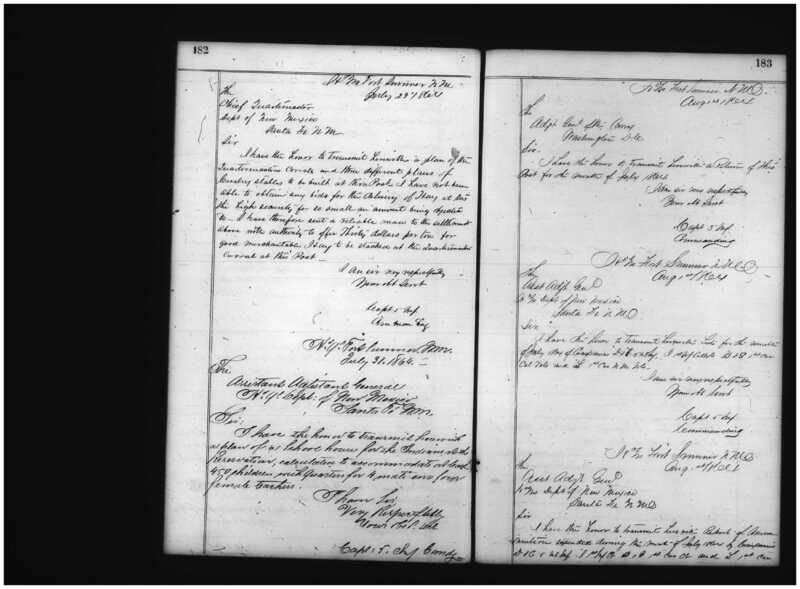 182
Hd Qrs Fort Sumner N.M.
July 29" 1864
The
Chief Quartermaster
Dept of New Mexico
Santa Fe N.M.
Sir
I have the honor to transmit herewith a plan of the
Quartermasters Corrals and three different plans of
Cavalry stables to be built at this Post. I have not been
able to obtain any bids for the delivery of Hay
the high security for so small an amount being
I have therefore sent a reliable man to the settlements
above with authority to offer Thirty dollars per ton for
good merchantable Hay to be stacked at the Quartermasters
Corral at this Post
I am sir very respectfully
Your Obt Servt
Capt 5 Inf
Hd. Qrs. Fort Sumner, N.M.
July 31. 1864.
The
Assistant Adjutant General
Hd. Qrs. Dept. of New Mexico
Santa Fe N.M.
Sir:
I have the honor to transmit herewith
a plan of a school house for the Indians on the
Reservation, calculated to accommodate at least
450 children with Quarters for 4 male and four
female teachers.
I am Sir
Very Respectfully
Your Obt.
Capt. 5. Inf Comdg
183
Hd Qrs Fort Sumner N.M.
Aug 1st 1864
The
Adjt Genl U.S. Army
Washington D.C.
Sir.
I have the honor to transmit herewith a Return of this
Post for the month of July 1864
I am sir very respectfully
Your Obt Servt
Capt 5 Inf
Commanding
Hd Qrs Fort Sumner N.M.
Aug 1st 1864
The
Asst Adjt Genl
Hd Qrs Dept of New Mexico
Santa Fe N.M.
Sir
I have the honor to transmit herewith for the month
of July
Cal Vols and L 1st Cav N.M. Vols.
I am sir very respectfully
Your Obt Servt
Capt 5 Inf
Commanding
Hd Qrs Fort Sumner N.M.
Aug 1864
The
Asst Adjt Genl
Hd Qrs Dept of New Mexico
Santa Fe N.M.
Sir
I have the honor to transmit herewith Report of Ammu
nition expended during the month of July 1864 by Companies
and L 1st Cav